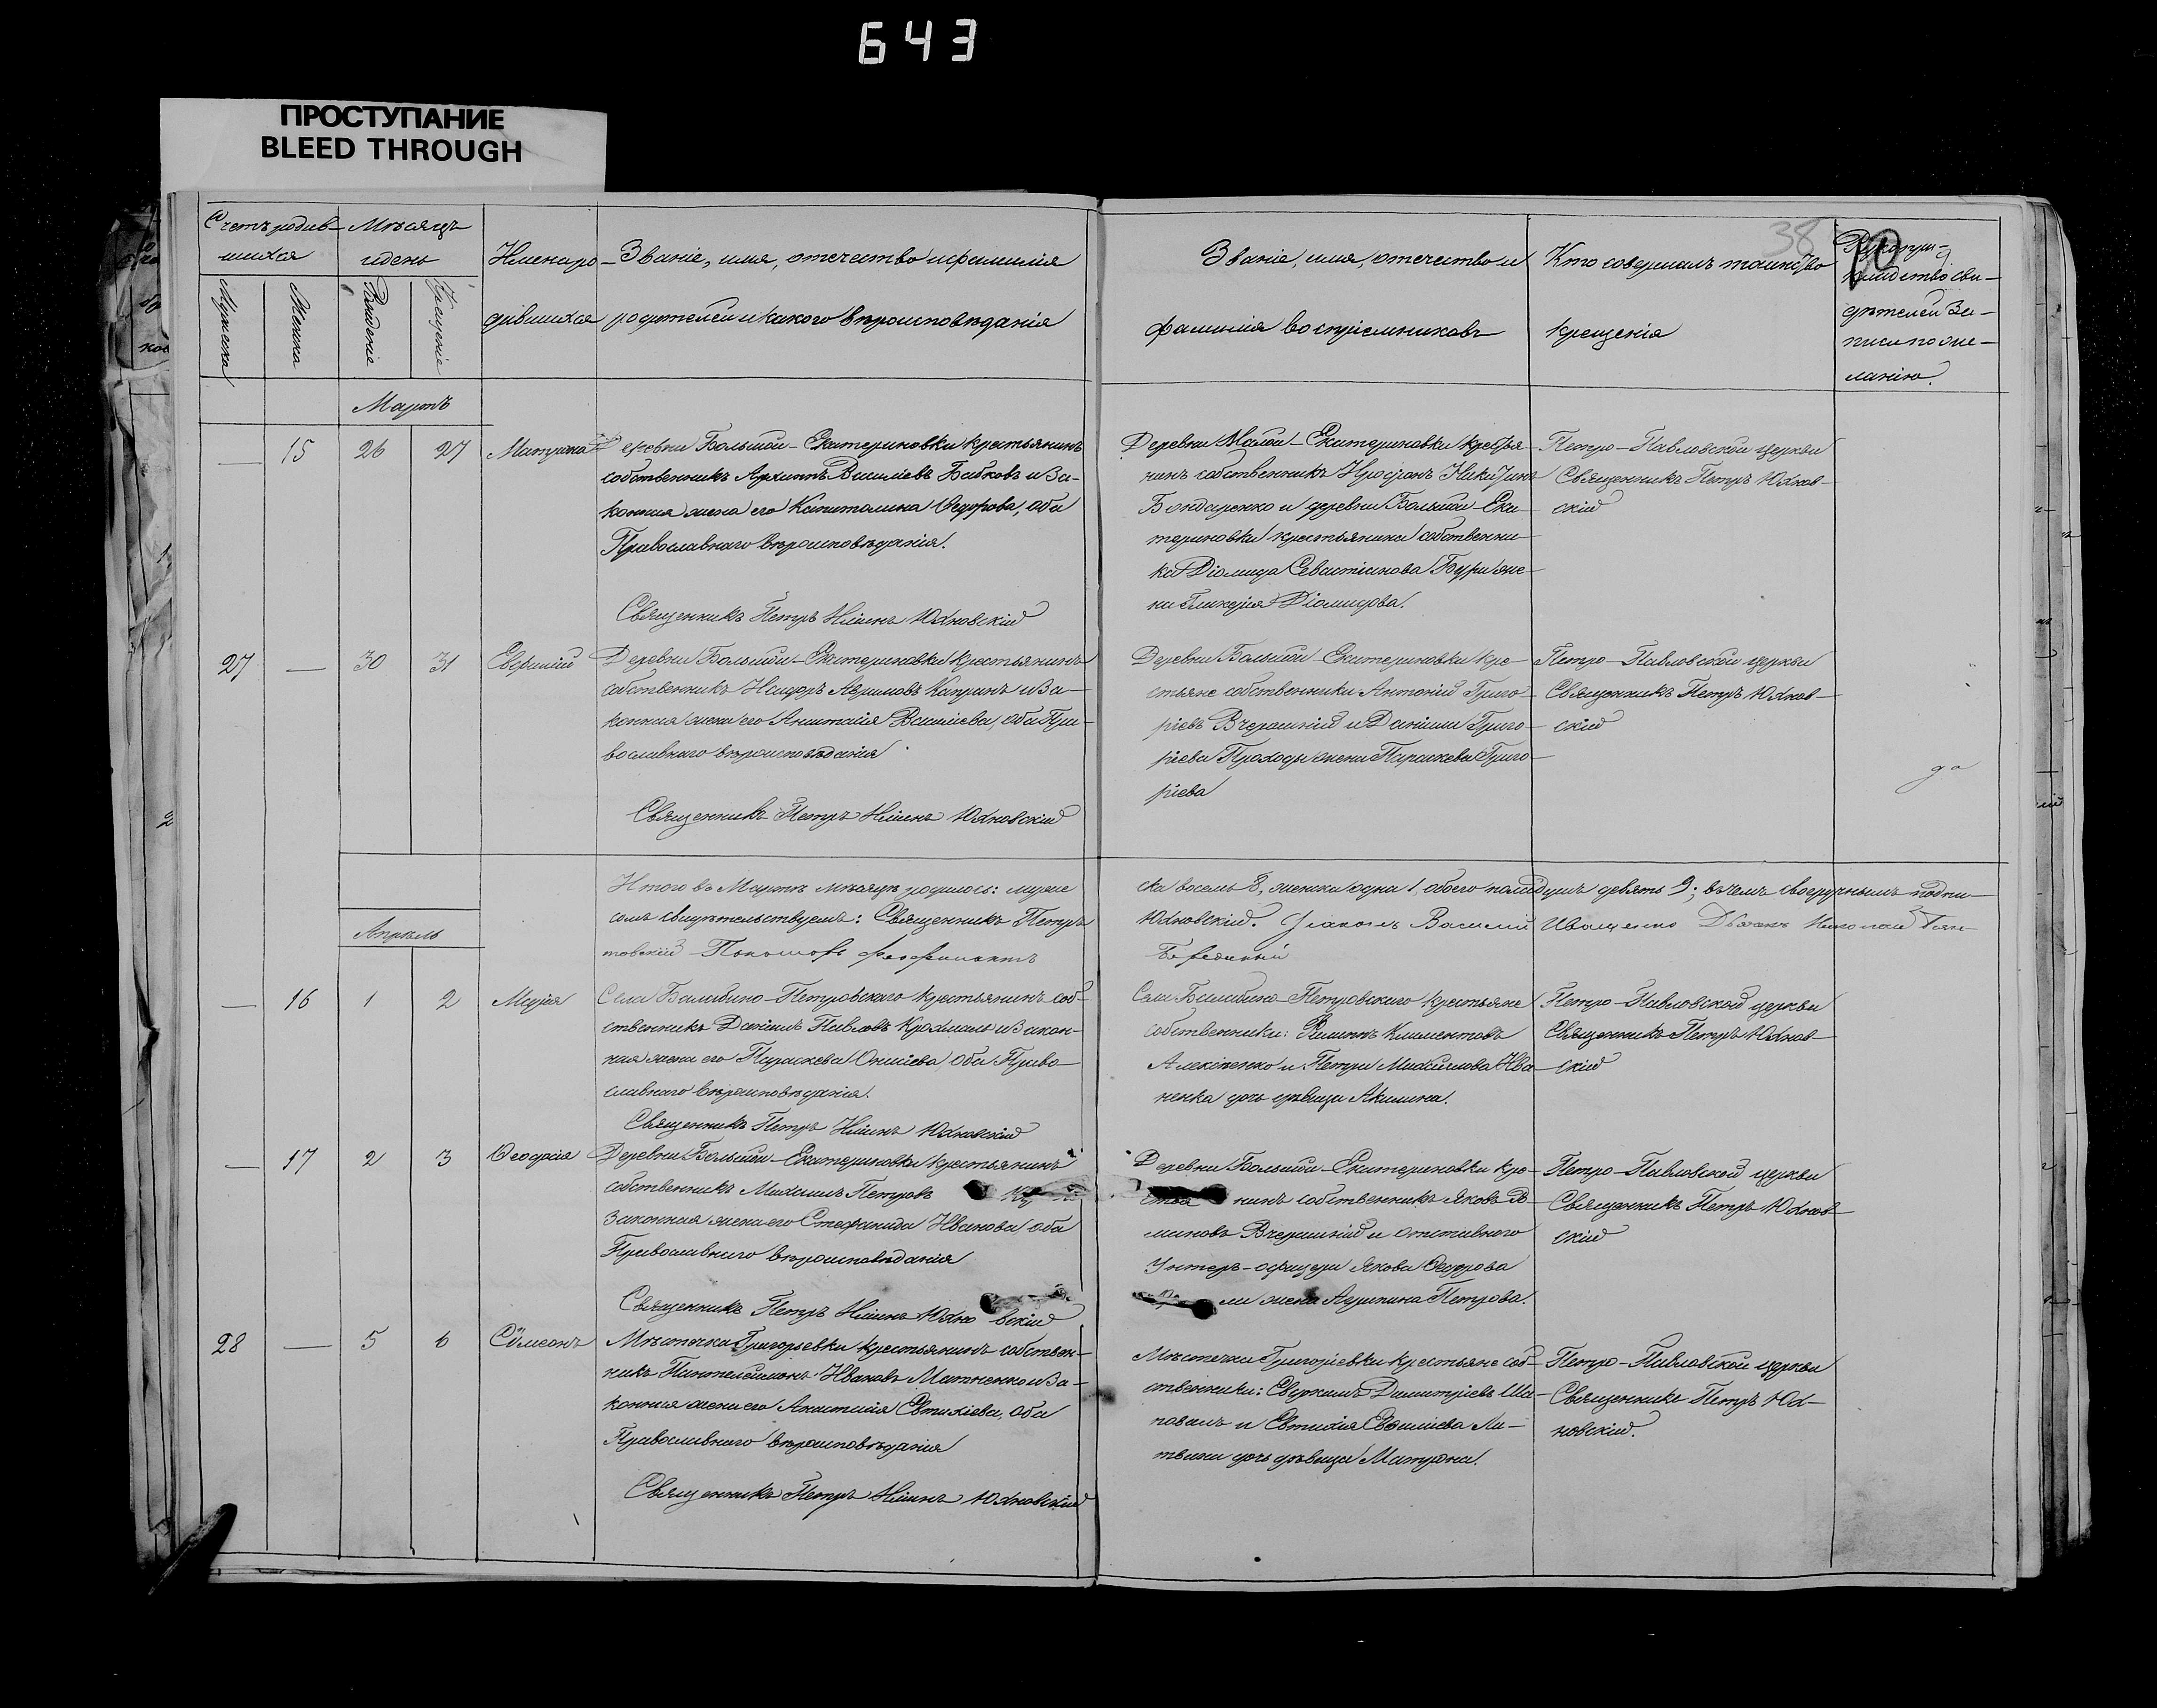 643
ПРОСТУПАНИЕ
BLEED THROUGH
38
10
Счетъ родив-
шихся
Мѣсяцъ
и день
Мужеска
Женска
Рожденіе
Крещеніе
Имена ро-
дившихся
Званіе, имя, отчество и фамилія
родителей и какого вѣроисповѣданія
Званіе, имя, отчество и
фамилія воспріемниковъ
Кто совершалъ таинство
крещенія
Рукопри-
кладство сви-
дѣтелей за-
писи по же-
ланію.
Мартъ
— 15 26 27 Матрона
Деревни Большой-Екатериновки крестьянинъ
собственникъ Архиппъ Василіевъ Бабковъ и за-
конная жена его Капитолина Ѳедорова, оба
Православнаго вѣроисповѣданія.
Священникъ Петръ Юхновскій
Деревни Малой-Екатериновки крестья-
нинъ собственникъ Никитинъ
Бондаренко и деревни Большой-Ека-
териновки крестьянина собственни-
ка Діомида Севастіанова же-
на Гликерія Діомидова.
Петро-Павловской церкви
Священникъ Петръ Юхнов-
скій
27 — 30 31 Евфимій
Деревни Большой-Екатериновки крестьянинъ
собственникъ Исидоръ и за-
конная жена его Анастасія Василіева, оба Пра-
вославнаго вѣроисповѣданія
Священникъ Петръ Юхновскій
Деревни Большой-Екатериновки кре-
стьяне собственники Антоній Григо-
ріевъ Вчерашній и Даніила Григо-
ріева Проходы жена Параскева Григо-
ріева
Петро-Павловской церкви
Священникъ Петръ Юхнов-
скій
да
Итого въ Мартѣ мѣсяцѣ родилось: муже
ска восемь 8, женска одна 1, обоего пола душъ девять 9; въ чемъ своеручнымъ подпи-
сомъ свидѣтельствуемъ: Священникъ Петръ
Юхновскій. Діаконъ Василій Иващенко Дьякъ Николай
Пономарь
Апрѣль
— 16 1 2 Марія
Села Балабино-Петровскаго крестьянинъ соб-
ственникъ Даніилъ Павловъ Крохмаль и закон-
ная жена его Параскева Онисіева, оба Право-
славнаго вѣроисповѣданія.
Священникъ Петръ Юхновскій
Села Балабино-Петровскаго крестьяне
собственники: Филиппъ Климентовъ
Алексѣенко и Петра Максимова Ива-
ненка дочь дѣвица Акилина.
Петро-Павловской церкви
Священникъ Петръ Юхнов-
скій
— 17 2 3 Ѳеодосія
Деревни Большой-Екатериновки крестьянинъ
собственникъ Михаилъ Петровъ
законная жена его Стефанида Иванова, оба
Православнаго вѣроисповѣданія
Священникъ Петръ Юхновскій
Деревни Большой-Екатериновки кре-
стья нинъ собственникъ Яковъ
миновъ Вчерашній и отставного
Унтеръ-офицера Якова Ѳедорова
ли жена Агрипина Петрова.
Петро-Павловской церкви
Священникъ Петръ Юхнов-
скій
28 — 5 6 Сѵмеонъ
Мѣстечка Григорьевки крестьянинъ собствен-
никъ Пантелеимонъ Ивановъ Матненко и за-
конная жена его Анастасія Евтихіева, оба
Православнаго вѣроисповѣданія
Священникъ Петръ Юхновскій
Мѣстечка Григоріевки крестьяне соб-
ственники: Димитріевъ Ша-
повалъ и Евтихія Ли-
твина дочь дѣвица Матрона.
Петро-Павловской церкви
Священникъ Петръ Юх-
новскій.